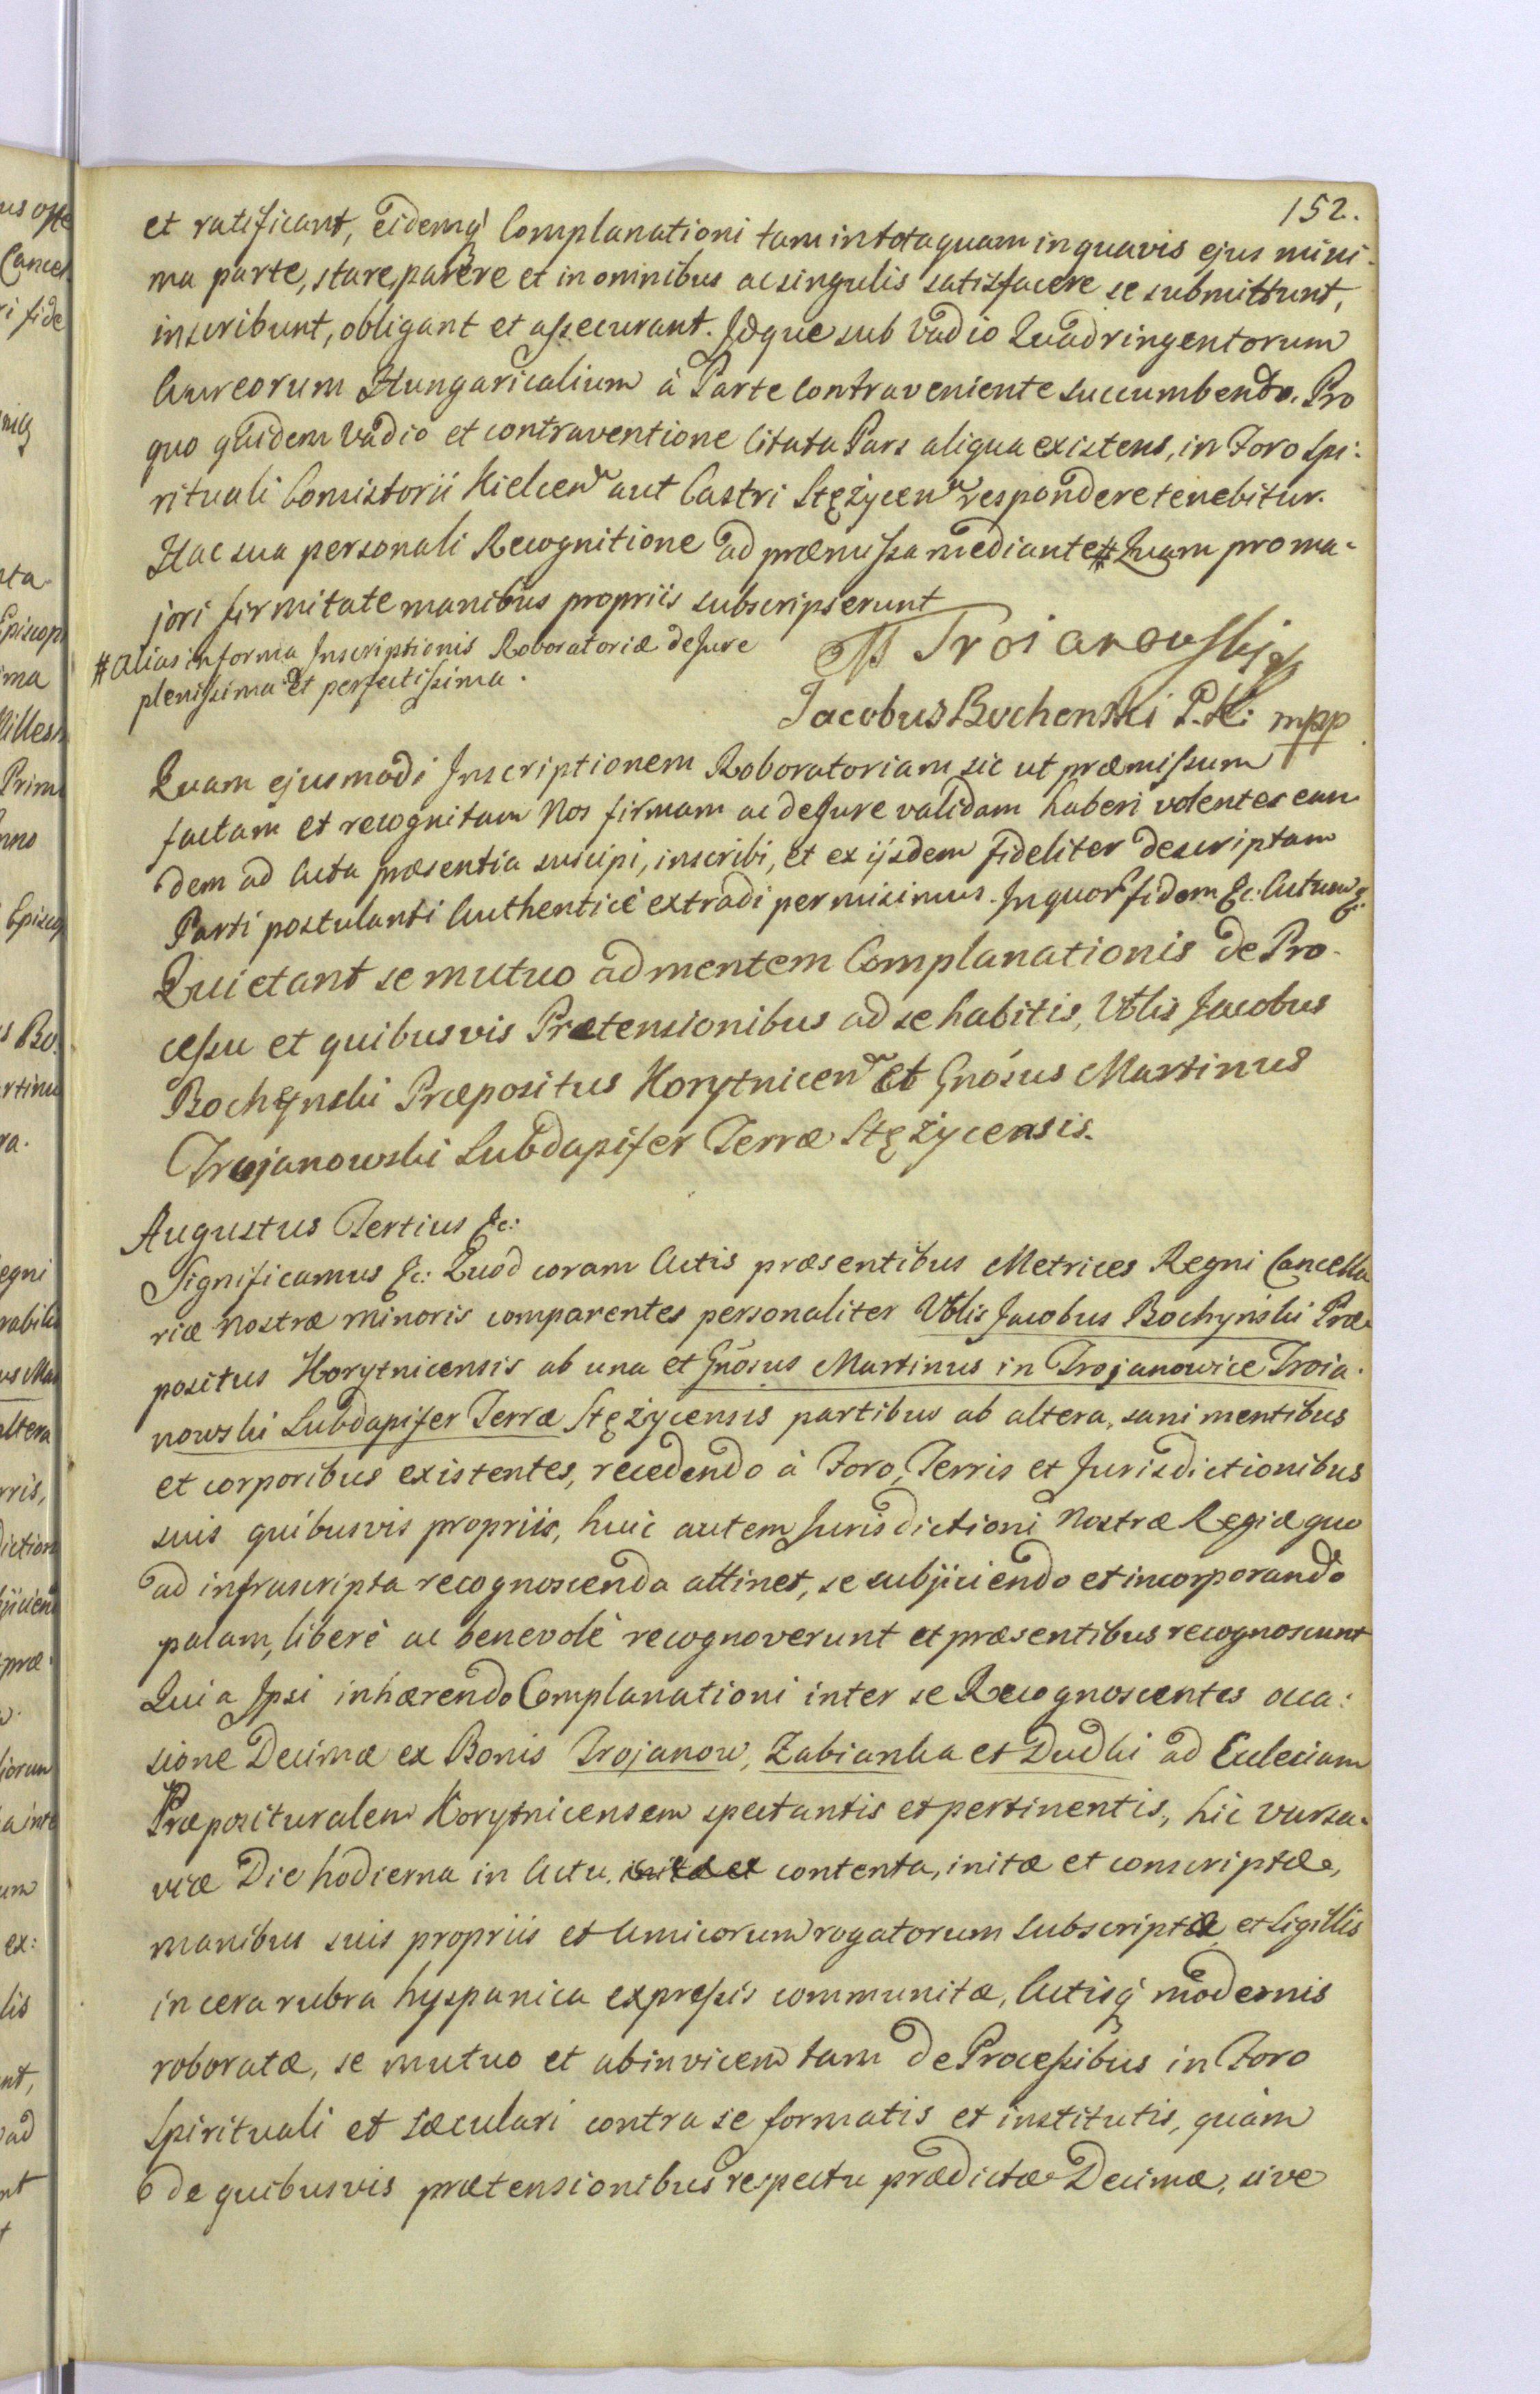 152.
et ratificant, eidemq́ Complanationi tam in tota quam in quavis ejus mini-
ma parte, stare, parere et in omnibus ac singulis satisfacere se submittunt,
inscribunt, obligant et assecurant. Idque sub Vadio Quadringentorum
Aureorum Hungaricalium à Parte Contraveniente succumbendo. Pro
quo quidem Vadio et contraventione Citata Pars aliqua existens, in Foro Spi-
rituali Consistorii Kielcen aut Castri Stężycen respondere tenebitur.
Hac sua personali Recognitione ad præmissa mediante # Quam pro ma-
jori firmitate manibus propriis subscripserunt
# alias in forma Inscriptionis Roboratoriæ de Jure
plenissima et perfectissima.
M Troianowski
Jacobus Bochenski P.K: mpp
Quam ejusmodi Inscriptionem Roboratoriam sic ut præmissum
factam et recognitam Nos firmam ac de Jure validam haberi volentes ean
dem ad Acta præsentia suscipi, inscribi, et ex ijsdem fideliter descriptam
Parti postulanti Authenticè extradi permisimus. In quor fidem &c: Actum &.
Quietant se mutuo ad mentem Complanationis de Pro-
cessu et quibusvis Prætensionibus ad se habitis, Vblis Jacobus
Bochynski Præpositus Korytnicen et Gnósus Martinus
Trojanowski Subdapifer Terræ Stężycensis.
Augustus Tertius &c:
Significamus &c: Quod coram Actis præsentibus Metrices Regni Cancella
riæ Nostræ minoris comparentes personaliter Vblis Jacobus Bochyński Præ
positus Korytnicensis ab una et Gnósus Martinus in Trojanowice Troia-
nowski Subdapifer Terræ Stężycensis partibus ab altera, sani mentibus
et corporibus existentes, recedendo à Foro, Terris et Jurisdictionibus
suis quibusvis propriis, huic autem Jurisdictioni Nostræ Regiæ quo
ad infrascripta recognoscenda attinet, se subjiciendo et incorporando
palam, liberè ac benevolè recognoverunt et præsentibus recognoscunt
Quia Ipsi inhærendo Complanationi inter se Recognoscentes occa:
sione Decimæ ex Bonis Trojanow, Zabianka et Dudki ad Ecclesiam
Præposituralem Korytnicensem spectantis et pertinentis, hic Varsa-
viæ Die hodierna in Actu initæ et contenta, initæ et conscriptæ,
manibus suis propriis et Amicorum rogatorum subscriptæ, et Sigillis
in cera rubra hyspanica expressis communitæ, Actisq́ modernis
roboratæ, se mutuo et abinvicem tam de Processibus in Foro
Spirituali et Sæculari contra se formatis et institutis, quàm
de quibusvis prætensionibus respectu prædictæ Decimæ, sive